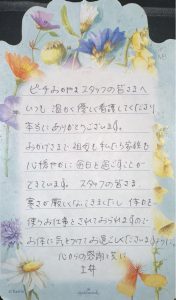 ピーチおかやま スタッフの皆さまへ
いつも 温かく優しく看護してくださり
本当にありがとうございます。
おかげさまで 祖母も私たち家族も
心穏やかに 毎日を過ごすことが
できています。 スタッフの皆さま、
寒さが厳しくなってきましたし 体力を
使うお仕事をされておられますので
お体に気をつけてお過ごしくださいますように。
心からの感謝と共に